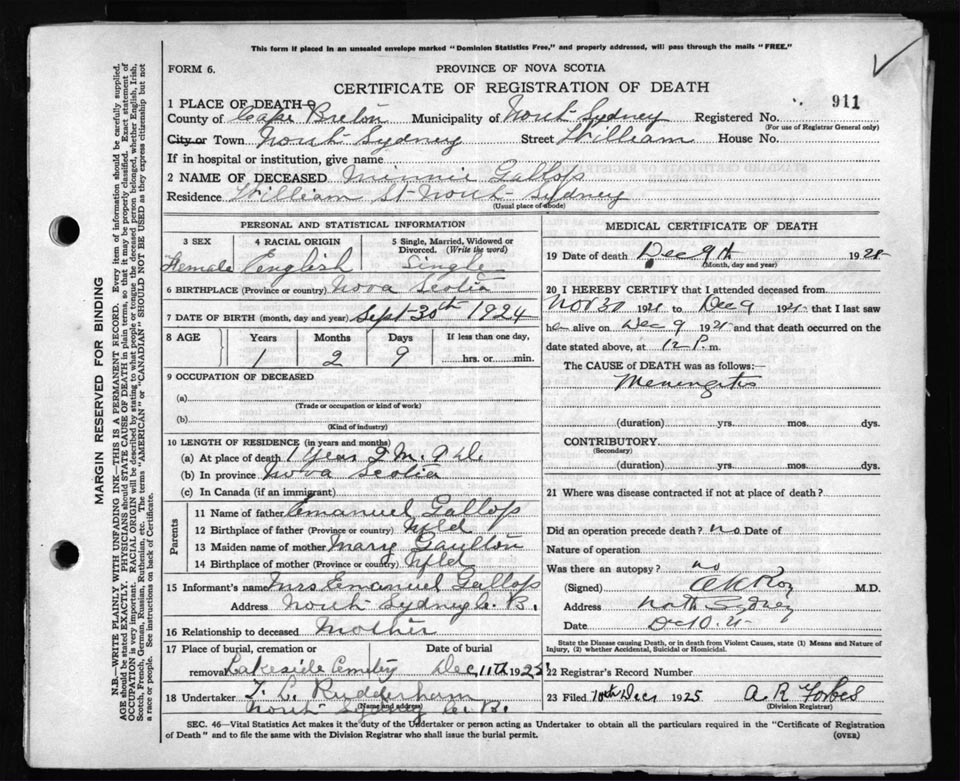 This form if placed in an unsealed envelope marked "Dominion Statistics Free," and properly addressed, will pass through the mails "FREE."
FORM 6.
PROVINCE OF NOVA SCOTIA
CERTIFICATE OF REGISTRATION OF DEATH
1 PLACE OF DEATH—
County of Cape Breton Municipality of North Sydney Registered No. 911
(For use of Registrar General only)
City or Town North Sydney Street William House No.
If in hospital or institution, give name
2 NAME OF DECEASED Minnie Gallop
Residence William St North Sydney
(Usual place of abode)
PERSONAL AND STATISTICAL INFORMATION
3 SEX 4 RACIAL ORIGIN 5 Single, Married, Widowed or Divorced. (Write the word)
Female English Single
6 BIRTHPLACE (Province or country) Nova Scotia
7 DATE OF BIRTH (month, day and year) Sept 30th 1924
8 AGE Years Months Days If less than one day,
1 2 9 hrs. or min.
9 OCCUPATION OF DECEASED
(a)
(Trade or occupation or kind of work)
(b)
(Kind of industry)
10 LENGTH OF RESIDENCE (in years and months)
(a) At place of death 1 Year 2 M. 9 D.
(b) In province Nova Scotia
(c) In Canada (if an immigrant)
Parents
11 Name of father Emanuel Gallop
12 Birthplace of father (Province or country) Nfld
13 Maiden name of mother Mary Gaulton
14 Birthplace of mother (Province or country) Nfld
15 Informant's name Mrs Emanuel Gallop
Address North Sydney C. B.
16 Relationship to deceased Mother
17 Place of burial, cremation or removal Date of burial
Lakeside Cemetry Dec 11th 1925
18 Undertaker T. L. Rudderham
North Sydney C. B.
(Name and address)
MEDICAL CERTIFICATE OF DEATH
19 Date of death Dec 9th 192
(Month, day and year)
20 I HEREBY CERTIFY that I attended deceased from
Nov 30 192 to Dec 9 192 that I last saw
h alive on Dec 9 192 and that death occurred on the
date stated above, at 12 P. m.
The CAUSE of DEATH was as follows:—
Meningitis
(duration) yrs. mos. dys.
CONTRIBUTORY.
(Secondary)
(duration) yrs. mos. dys.
21 Where was disease contracted if not at place of death?
Did an operation precede death? no Date of
Nature of operation
Was there an autopsy? no
(Signed) M.D.
Address North Sydney
Date
State the Disease causing Death, or in death from Violent Causes, state (1) Means and Nature of
Injury, (2) whether Accidental, Suicidal or Homicidal.
22 Registrar's Record Number
23 Filed 10th Dec 1925 A. R Forbes
(Division Registrar)
SEC. 46—Vital Statistics Act makes it the duty of the Undertaker or person acting as Undertaker to obtain all the particulars required in the "Certificate of Registration
of Death" and to file the same with the Division Registrar who shall issue the burial permit. (OVER)
MARGIN RESERVED FOR BINDING
N.B.—WRITE PLAINLY WITH UNFADING INK—THIS IS A PERMANENT RECORD. Every item of information should be carefully supplied.
AGE should be stated EXACTLY. PHYSICIANS should STATE CAUSE OF DEATH in plain terms, so that it may be properly classified. Exact statement of
OCCUPATION is very important. RACIAL ORIGIN will be described by stating to what people or tongue the deceased person belonged, whether English, Irish,
Scotch, French, German, Russian, Ruthenian, etc. The terms "AMERICAN" or "CANADIAN" SHOULD NOT BE USED as they express citizenship but not
a race or people. See instructions on back of Certificate.